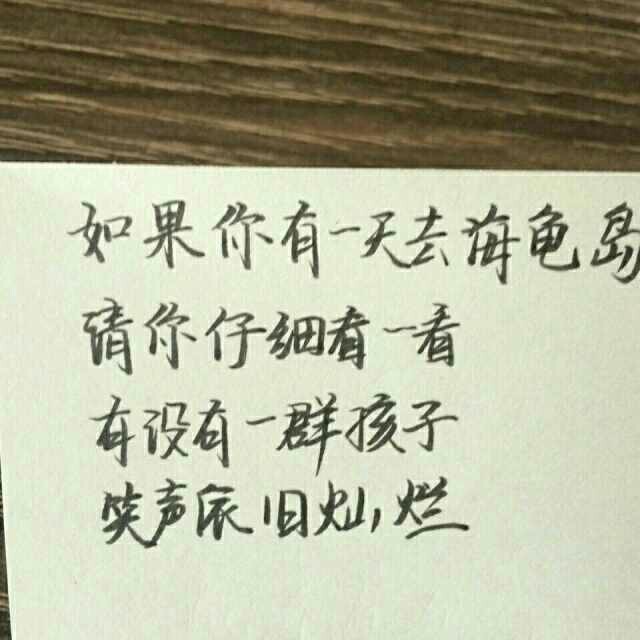 如果你有一天去海龟岛
请你仔细看一看
有没有一群孩子
笑声依旧灿烂